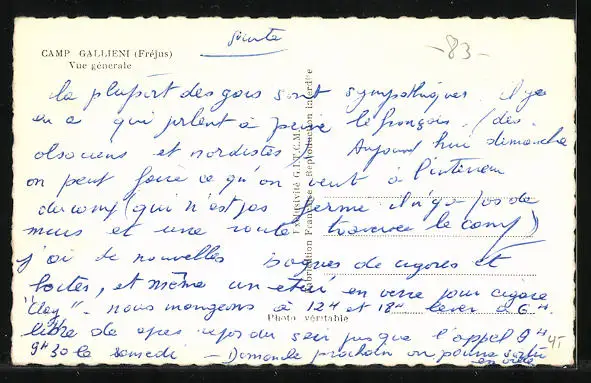 suite
-83-
CAMP GALLIENI (Fréjus)
Vue générale
la plupart des gars sont sympathiques. il y a
en a qui parlent à peine le français (des
alsaciens et nordistes Aujourd'hui dimanche
on peut faire ce qu'on veut à l'intérieur
du camp (qui n'est pas fermé il n'y a pas de
murs et une route traverse le camp)
j'ai de nouvelles bagues de cigares et
boites, et même un étui en verre pour cigare
"Clay" - nous mangeons à 12H et 18H lever à 6H.
libre de après repas du soir jusque l'appel 9H
9H30 le samedi - Dimanche prochain on pourra sortir
en ville
Exclusivité G.I.T.C.M.
Reproduction Interdite
Fabrication Française
Photo véritable
45